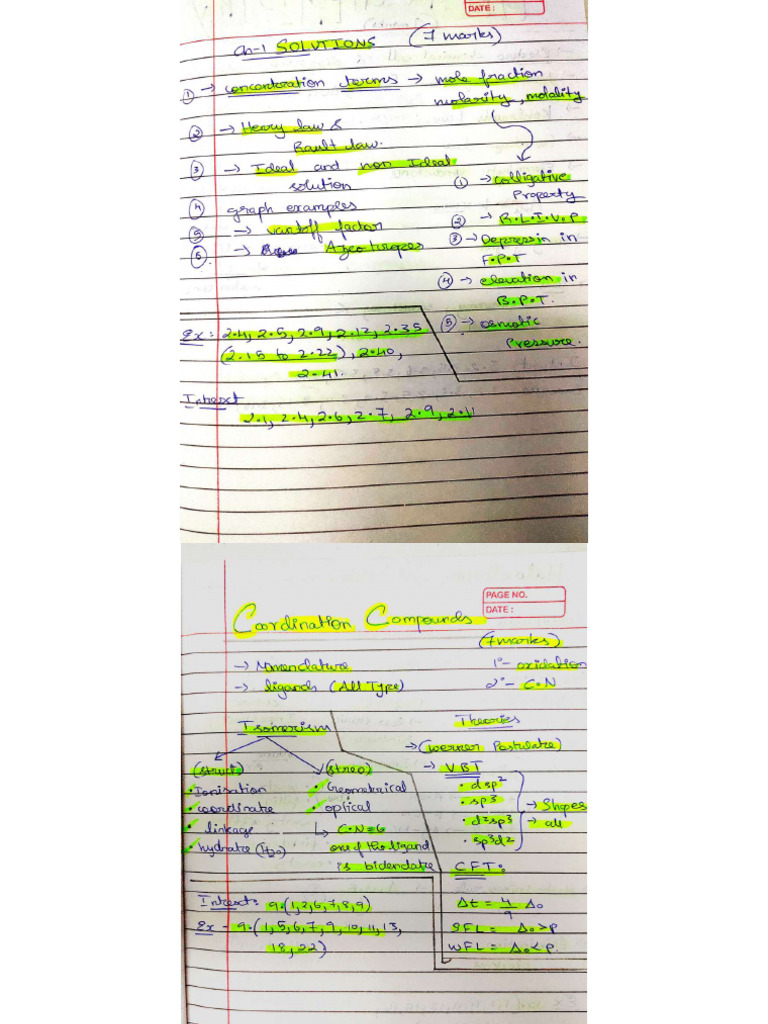 DATE :
Ch-1 SOLUTIONS (7 marks)
① → concentration terms → mole fraction
molarity, molality
② → Henry law &
Rault law.
③ → Ideal and non Ideal
solution
④ graph examples
⑤ → vantoff factor
⑥ → Azeotropes
① → colligative
Property
② → R.L.I.V.P
③ → Depressin in
F.P.T
④ → elevation in
B.P.T.
⑤ → osmotic
Pressure.
Ex: 2.4, 2.5, 2.9, 2.12, 2.35
(2.15 to 2.22), 2.40,
2.41.
Intext
2.1, 2.4, 2.6, 2.7, 2.9, 2.11
PAGE NO.
DATE :
Coordination Compounds
(7 marks)
→ Nmenclature
→ ligands (All Type)
1° - oxidation
2° - C.N
Isomerism
(struct)
• Ionisation
• coordinate
• linkage
• hydrate (H₂O)
(streo)
• Geometrical
• optical
↳ C.N=6
one of the ligand
is bidendate
Theories
→ (werner Postulate)
→ VBT
• dsp²
• sp³
• d²sp³
• sp³d²
→ Shapes
→ all
CFT:
Δt = 4/9 Δ₀
SFL = Δ₀>P
WFL = Δ₀<P.
Intext: 9.(1,2,6,7,8,9)
Ex - 9.(1,5,6,7,9,10,11,13,
18,22)